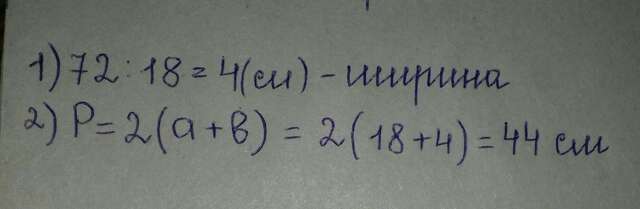 1) 72 : 18 = 4 (см) - ширина
2) P = 2(a + b) = 2(18+4) = 44 см